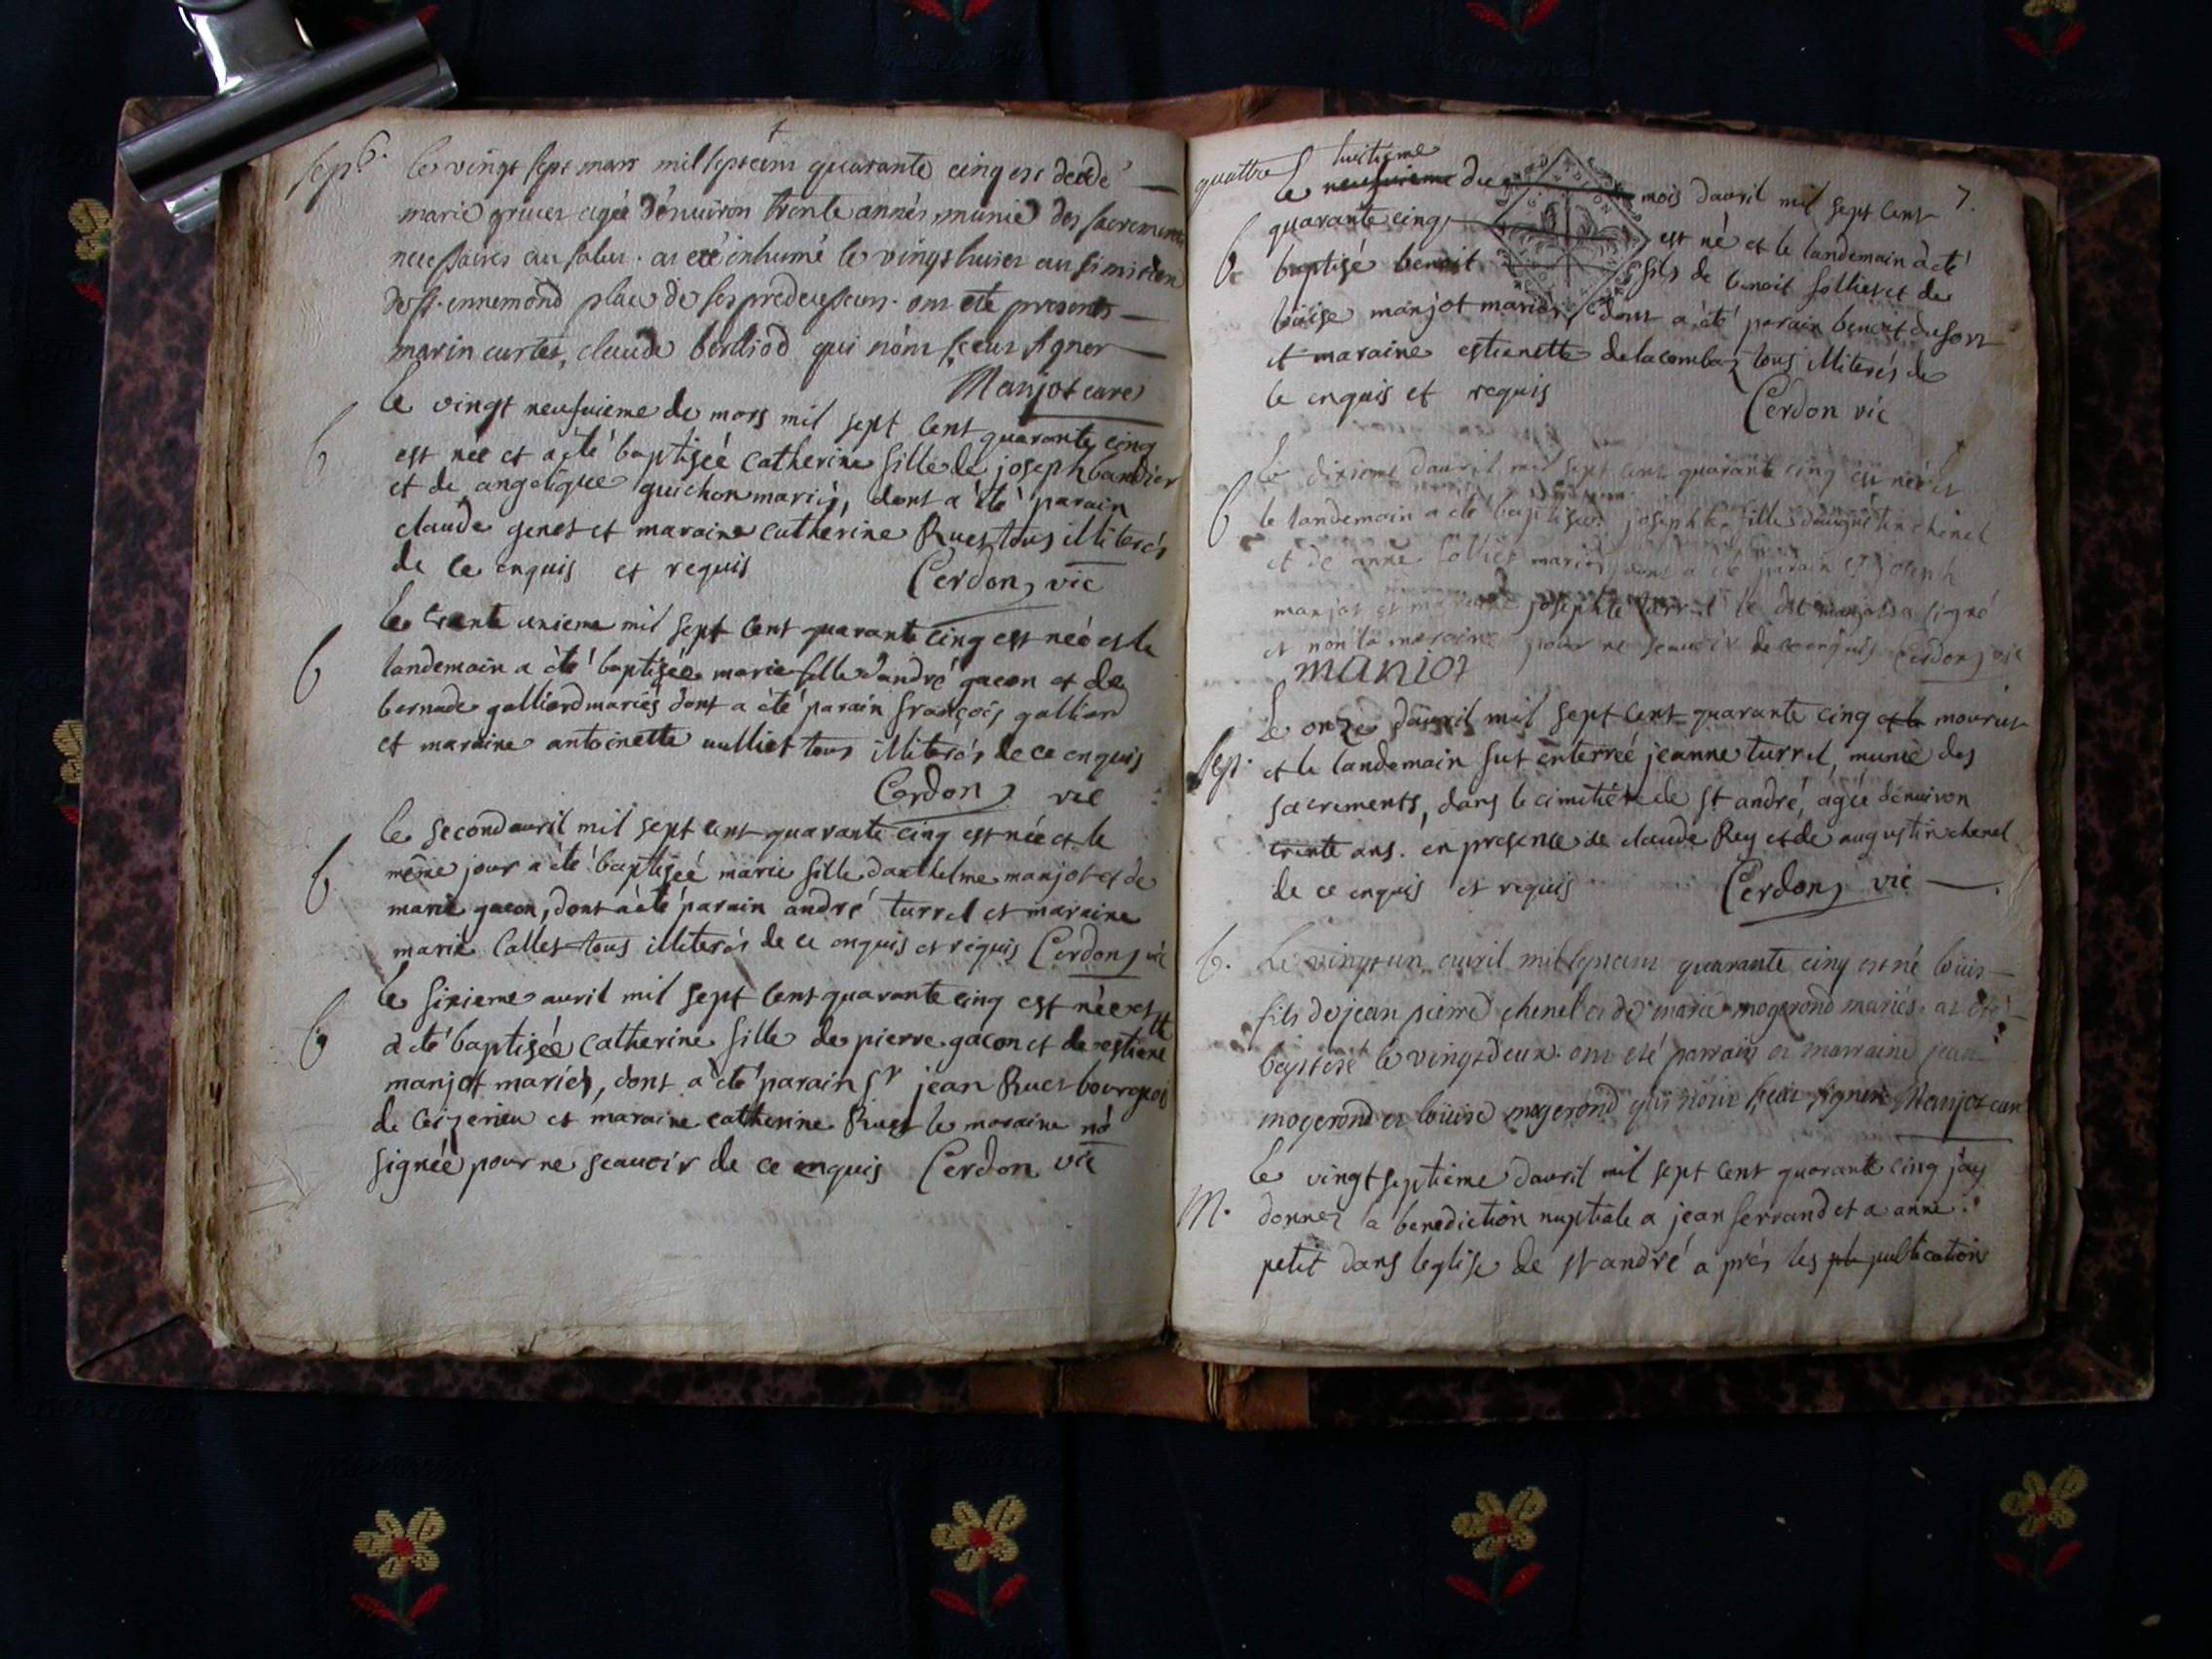 sep.
le vingt sept mars mil sept cent quarante cinq est decedé
marie gruet agée d'enuiron trente années, munie des sacrements
necessaires au salut. at eté inhumé le vingt huict au simistere
de st. ennemond place de ses predecesseurs. ont eté presents
marin curtet, claude berthod qui n'ont sceut signer
Manjot curé
b
le vingt neufuieme de mars mil sept cent quarante cinq
est née et a été baptiseé catherine fille de joseph bandier
et de angelique guichon mariés, dont a été parain
claude genet et maraine catherine Ruet tous illiterés
de ce enquis et requis Cerdon, vic
b
le trante unieme mil sept cent quarante cinq est neé et le
landemain a été baptiseé marie fille d'andré gacon et de
bernade galliard mariés dont a été parain françois galliard
et maraine antoinette tous illiterés de ce enquis
Cerdon, vic
b
le second auril mil sept cent quarante cinq est née et le
même jour a été baptiseé marie fille d'anthelme manjot et de
marie gacon, dont a été parain andré turrel et maraine
marie Callet tous illiterés de ce enquis et requis Cerdon, vic
b
le sixieme auril mil sept cent quarante cinq est née et
a été baptiseé catherine fille de pierre gacon et de estiene
manjot mariés, dont a été parain sr jean Ruet bourgeois
de Ceizerieu et maraine catherine Ruet le maraine n'a
signée pour ne scauoir de ce enquis Cerdon vic
7.
quattre
huitieme
le neufuieme du mois dauril mil sept cent
quarante cinq est né et le landemain a été
b
baptisé benoit fils de benoit sollier et de
loüise manjot mariés, dont a été parain benoit dufour
et maraine estienette delacombaz tous illiterés de
le enquis et requis Cerdon vic
b
le dixieme dauril mil sept cent quarante cinq est née et
le landemain a été baptisée josephte fille d'augustin chenel
et de anne mariés, dont a été parain joseph
manjot et maraine josephte turrel le dit manjot a signé
et non la maraine pour ne scauoir de ce enquis Cerdon, vic
maniot
Le onze dauril mil sept cent quarante cinq et le mourut
sep.
et le landemain fut enterreé jeanne turrel, munie des
sacrements, dans le cimitière de st andré, ageé d'enuiron
trente ans. en presence de claude Rey et de augustin chenel
de ce enquis et requis Cerdon, vic
b.
Le vingt un auril mil sept cent quarante cinq est né loüis
fils de jean pierre chenel et de marie mogerond mariés. at été
baptisé le vingt deux. ont eté parrain et marraine jean
mogerond et loüise mogerond qui n'ont sceut signer Manjot curé
le vingt septieme dauril mil sept cent quarante cinq j'ay
M.
donnez la benediction nuptiale a jean ferrand et a anne
petit dans leglise de st andré a prés les pb publication